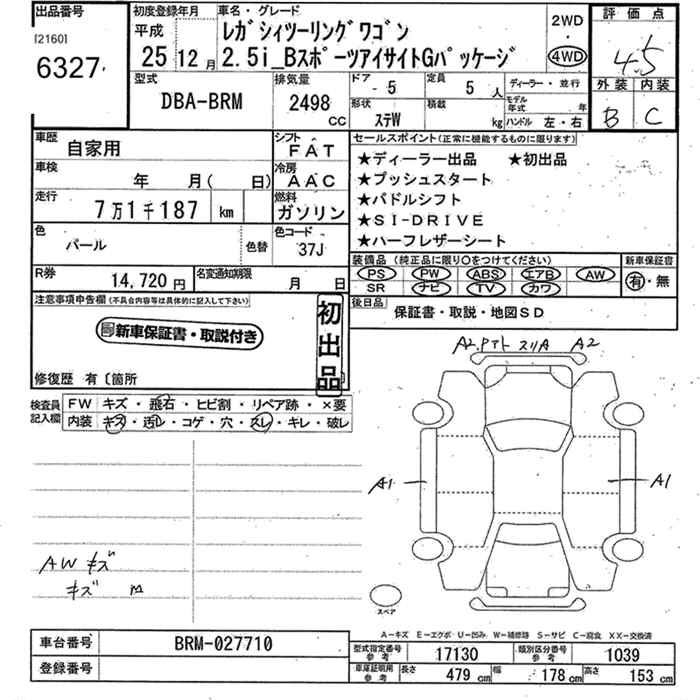 出品番号
[2160]
6327
初度登録年月
平成
25 12月
車名・グレード
レガシィツーリングワゴン
2.5i_BスポーツアイサイトGパッケージ
2WD
・
4WD
評価点
4.5
外装 内装
B C
型式
DBA-BRM
排気量
2498
CC
ドア
- 5
定員
5 人
ディーラー・並行
形状
ステW
積載
kg
モデル年式 年
ハンドル 左・右
車歴
自家用
シフト
FAT
車検
年 月( 日)
冷房
AAC
走行
7万1千187 km
燃料
ガソリン
色
パール
色替
色コード
37J
R券
14,720円
名変通知期限
月 日
セールスポイント(正常に機能するものに限ります)
★ディーラー出品 ★初出品
★プッシュスタート
★パドルシフト
★SI-DRIVE
★ハーフレザーシート
装備品 (純正品に限り○をつけてください)
PS PW ABS エアB AW
SR ナビ TV カワ
新車保証書
有・無
後日品
保証書・取説・地図SD
注意事項申告欄(不具合内容等は具体的に記入して下さい)
新車保証書・取説付き
初出品
修復歴 有〔箇所
検査員記入欄
FW キズ・飛石・ヒビ割・リペア跡・×要
内装 キズ・汚レ・コゲ・穴・スレ・キレ・破レ
A2 Pアト スリA A2
A1
A1
AWキズ
キズ M
スペア
A-キズ E-エクボ U-凹み W-補修跡 S-サビ C-腐食 XX-交換済
車台番号
BRM-027710
登録番号
型式指定番号 参考
17130
類別区分番号 参考
1039
車庫証明用 参考
長さ 479 cm
幅 178 cm
高さ 153 cm